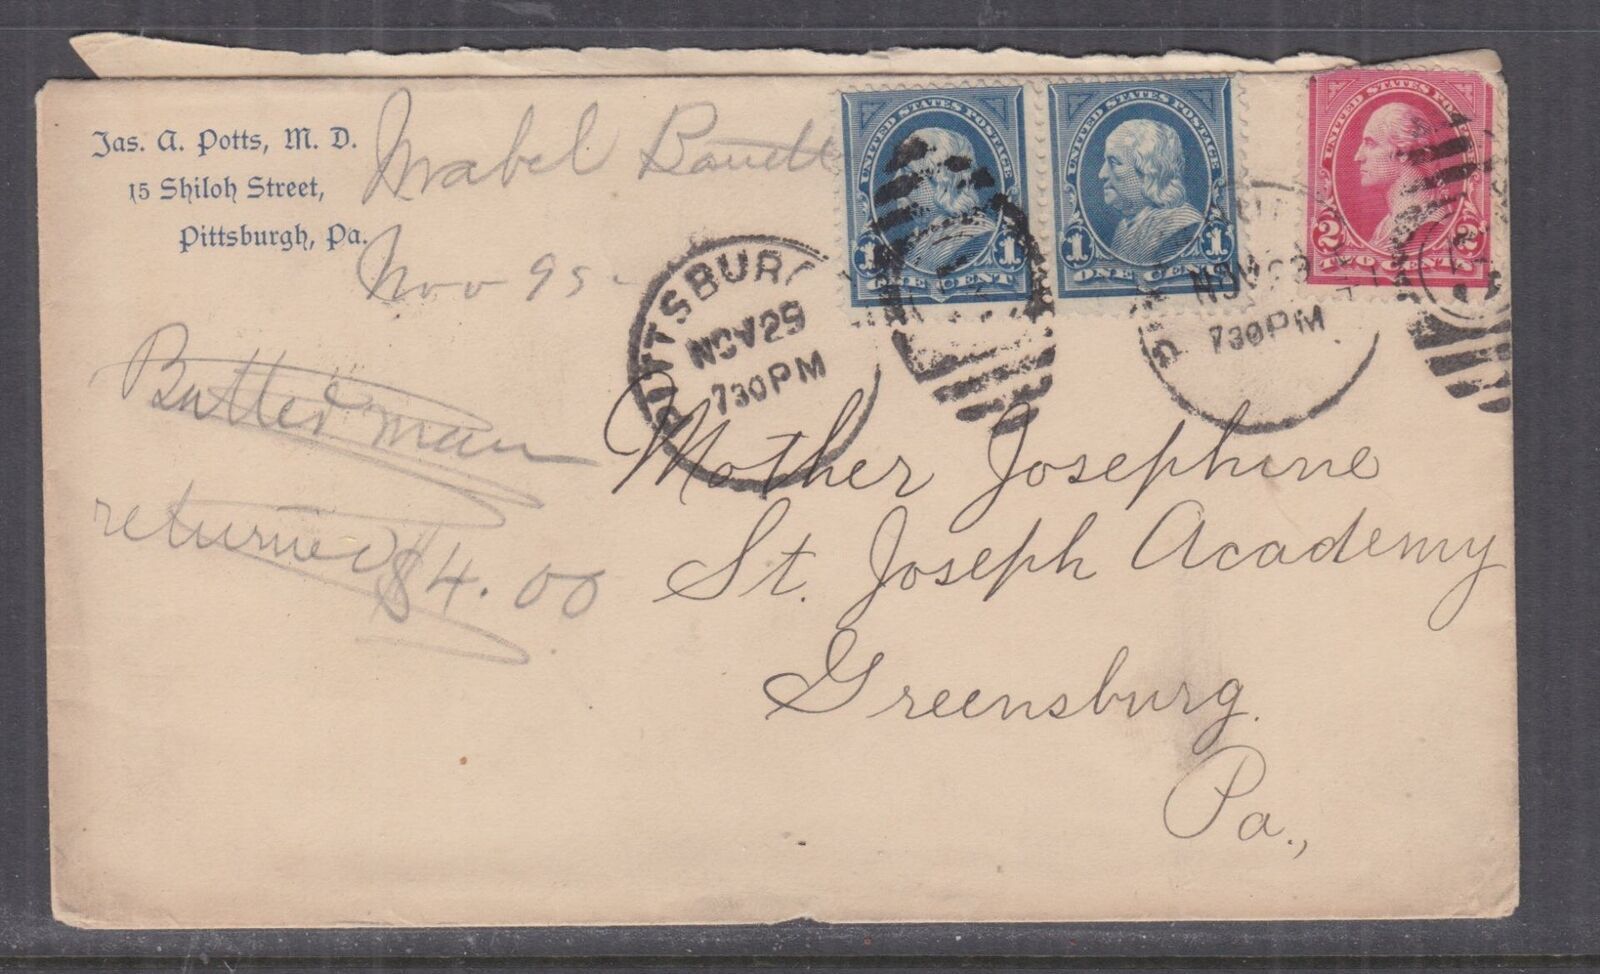 Jas. A. Potts, M. D.
15 Shiloh Street,
Pittsburgh, Pa.
Mabel
Nov 95 -
UNITED STATES POSTAGE
1 1
ONE CENT
UNITED STATES POSTAGE
1 1
ONE CENT
UNITED STATES POSTAGE
2 2
TWO CENTS
PITTSBURG
NOV 29
730PM
NOV
730PM
Butterman
returned $4.00
Mother Josephine
St. Joseph Academy
Greensburg.
Pa.,